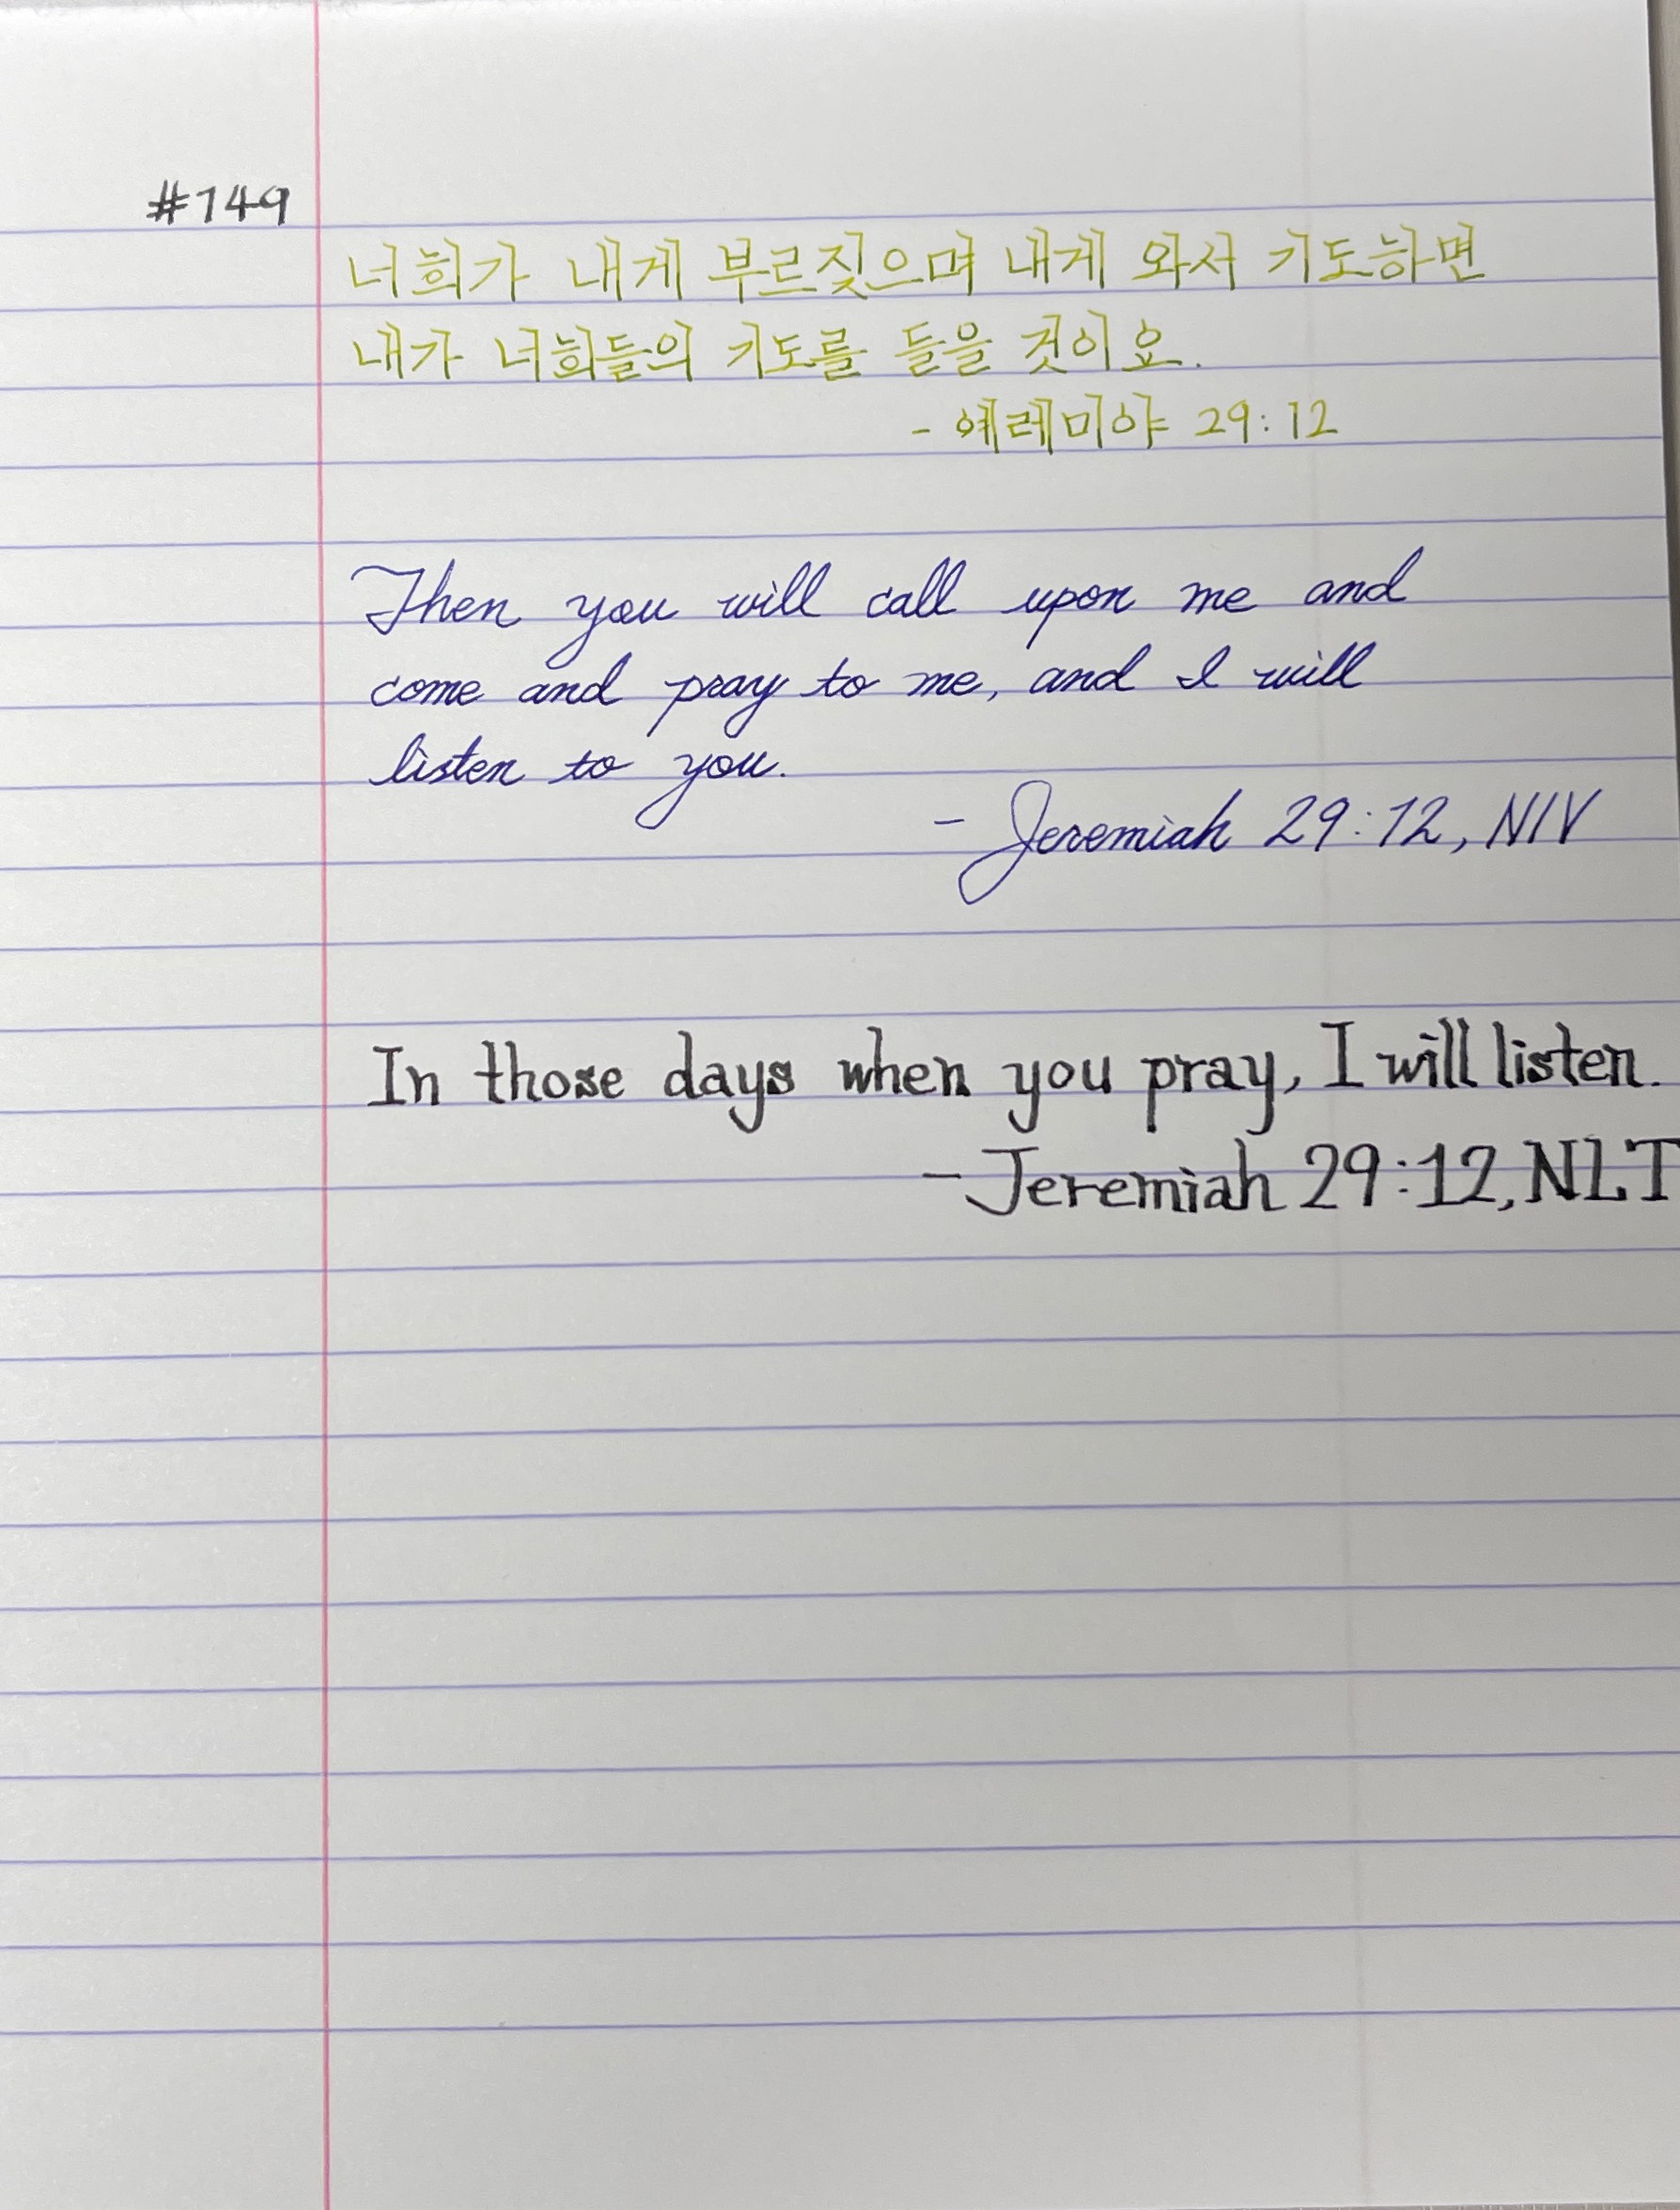 #149
너희가 내게 부르짖으며 내게 와서 기도하면
내가 너희들의 기도를 들을 것이요.
- 예레미야 29:12
Then you will call upon me and
come and pray to me, and I will
listen to you.
- Jeremiah 29:12, NIV
In those days when you pray, I will listen.
- Jeremiah 29:12, NLT